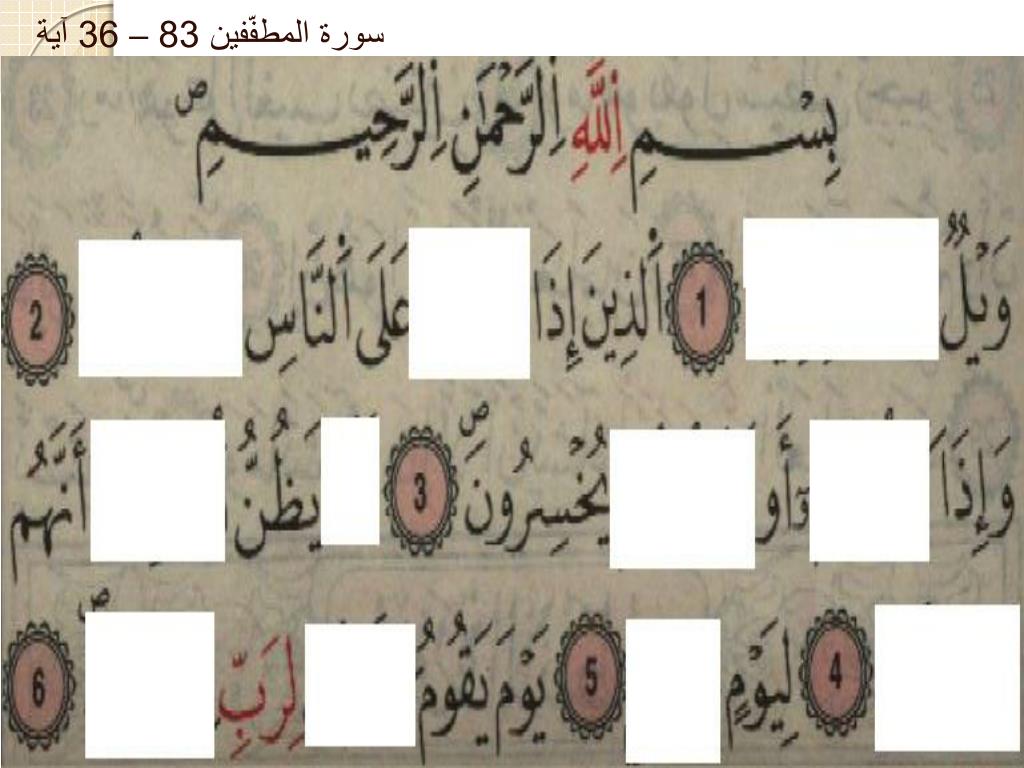 سورة المطفّفين 83 – 36 آية
بِسْمِ اِللَّهِ اِلرَّحْمَٰنِ اِلرَّحِيمِ ص
وَيْلٌ 1 اَلذِينَ إِذَا عَلَى اَلنَّاسِ 2
وَإِذَا يُخْسِرُونَ ص 3 يَظُنُّ أَنَّهُم
4 لِيَوْمٍ 5 يَوْمَ يَقُومُ لِرَبِّ ص 6